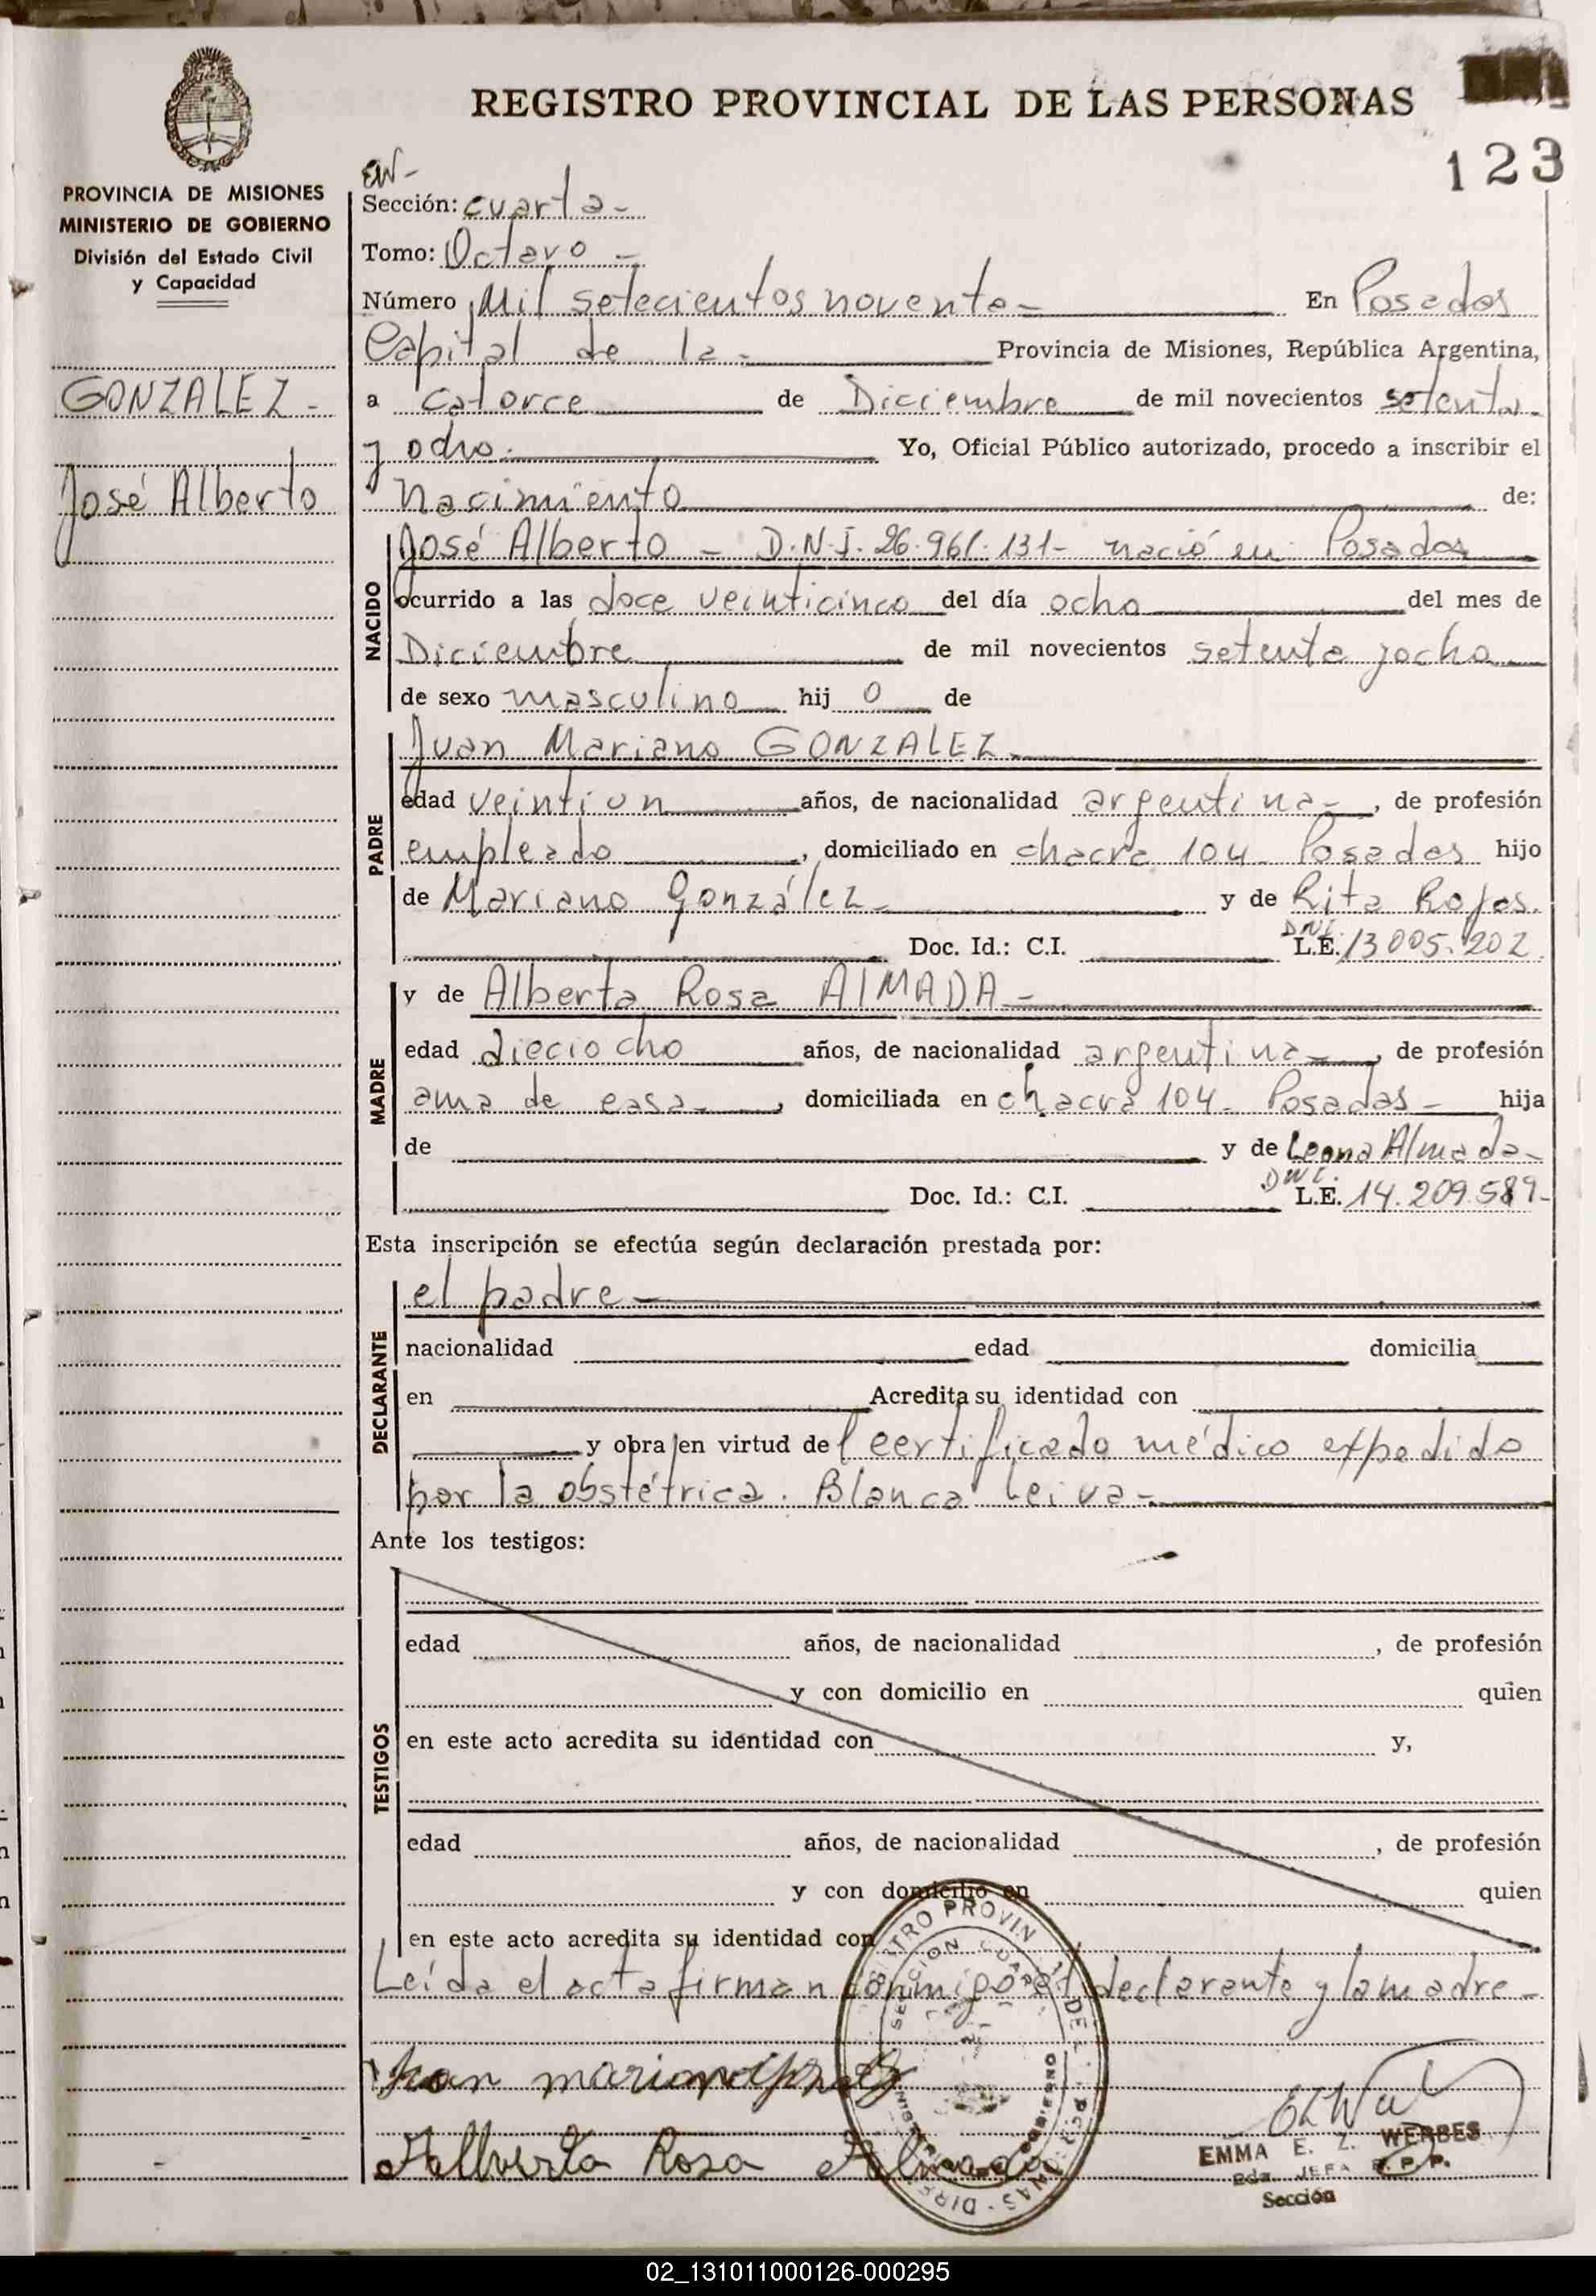 REGISTRO PROVINCIAL DE LAS PERSONAS
123
PROVINCIA DE MISIONES
MINISTERIO DE GOBIERNO
División del Estado Civil
y Capacidad
GONZALEZ -
José Alberto
Sección: cuarta -
Tomo: Octavo -
Número Mil setecientos noventa - En Posadas
Capital de la - Provincia de Misiones, República Argentina,
a catorce de Diciembre de mil novecientos setenta
y ocho. Yo, Oficial Público autorizado, procedo a inscribir el
nacimiento de:
NACIDO
José Alberto - D.N.I. 26.961.131- nació en Posadas
ocurrido a las doce veinticinco del día ocho del mes de
Diciembre de mil novecientos setenta y ocho
de sexo masculino hij o de
PADRE
Juan Mariano GONZALEZ -
edad veintiun años, de nacionalidad argentina - , de profesión
empleado , domiciliado en chacra 104 - Posadas hijo
de Mariano González - y de Rita Rojas.
DNI
Doc. Id.: C.I. L.E. 13005.202
MADRE
y de Alberta Rosa AlMADA -
edad dieciocho años, de nacionalidad argentina - , de profesión
ama de casa - , domiciliada en chacra 104 - Posadas - hija
de y de Leona Almada -
DNI.
Doc. Id.: C.I. L.E. 14.209.589-
Esta inscripción se efectúa según declaración prestada por:
DECLARANTE
el padre -
nacionalidad edad domicilia
en Acredita su identidad con
y obra en virtud del certificado médico expedido
por la obstétrica. Blanca Leiva -
Ante los testigos:
TESTIGOS
edad años, de nacionalidad , de profesión
y con domicilio en quien
en este acto acredita su identidad con y,
edad años, de nacionalidad , de profesión
y con domicilio en quien
en este acto acredita su identidad con
Leída el acta firman conmigo el declarante y la madre -
Juan mariano
Alberta Rosa Almada
EMMA E. Z. WERBES
JEFA R. P. P.
Sección
02_131011000126-000295